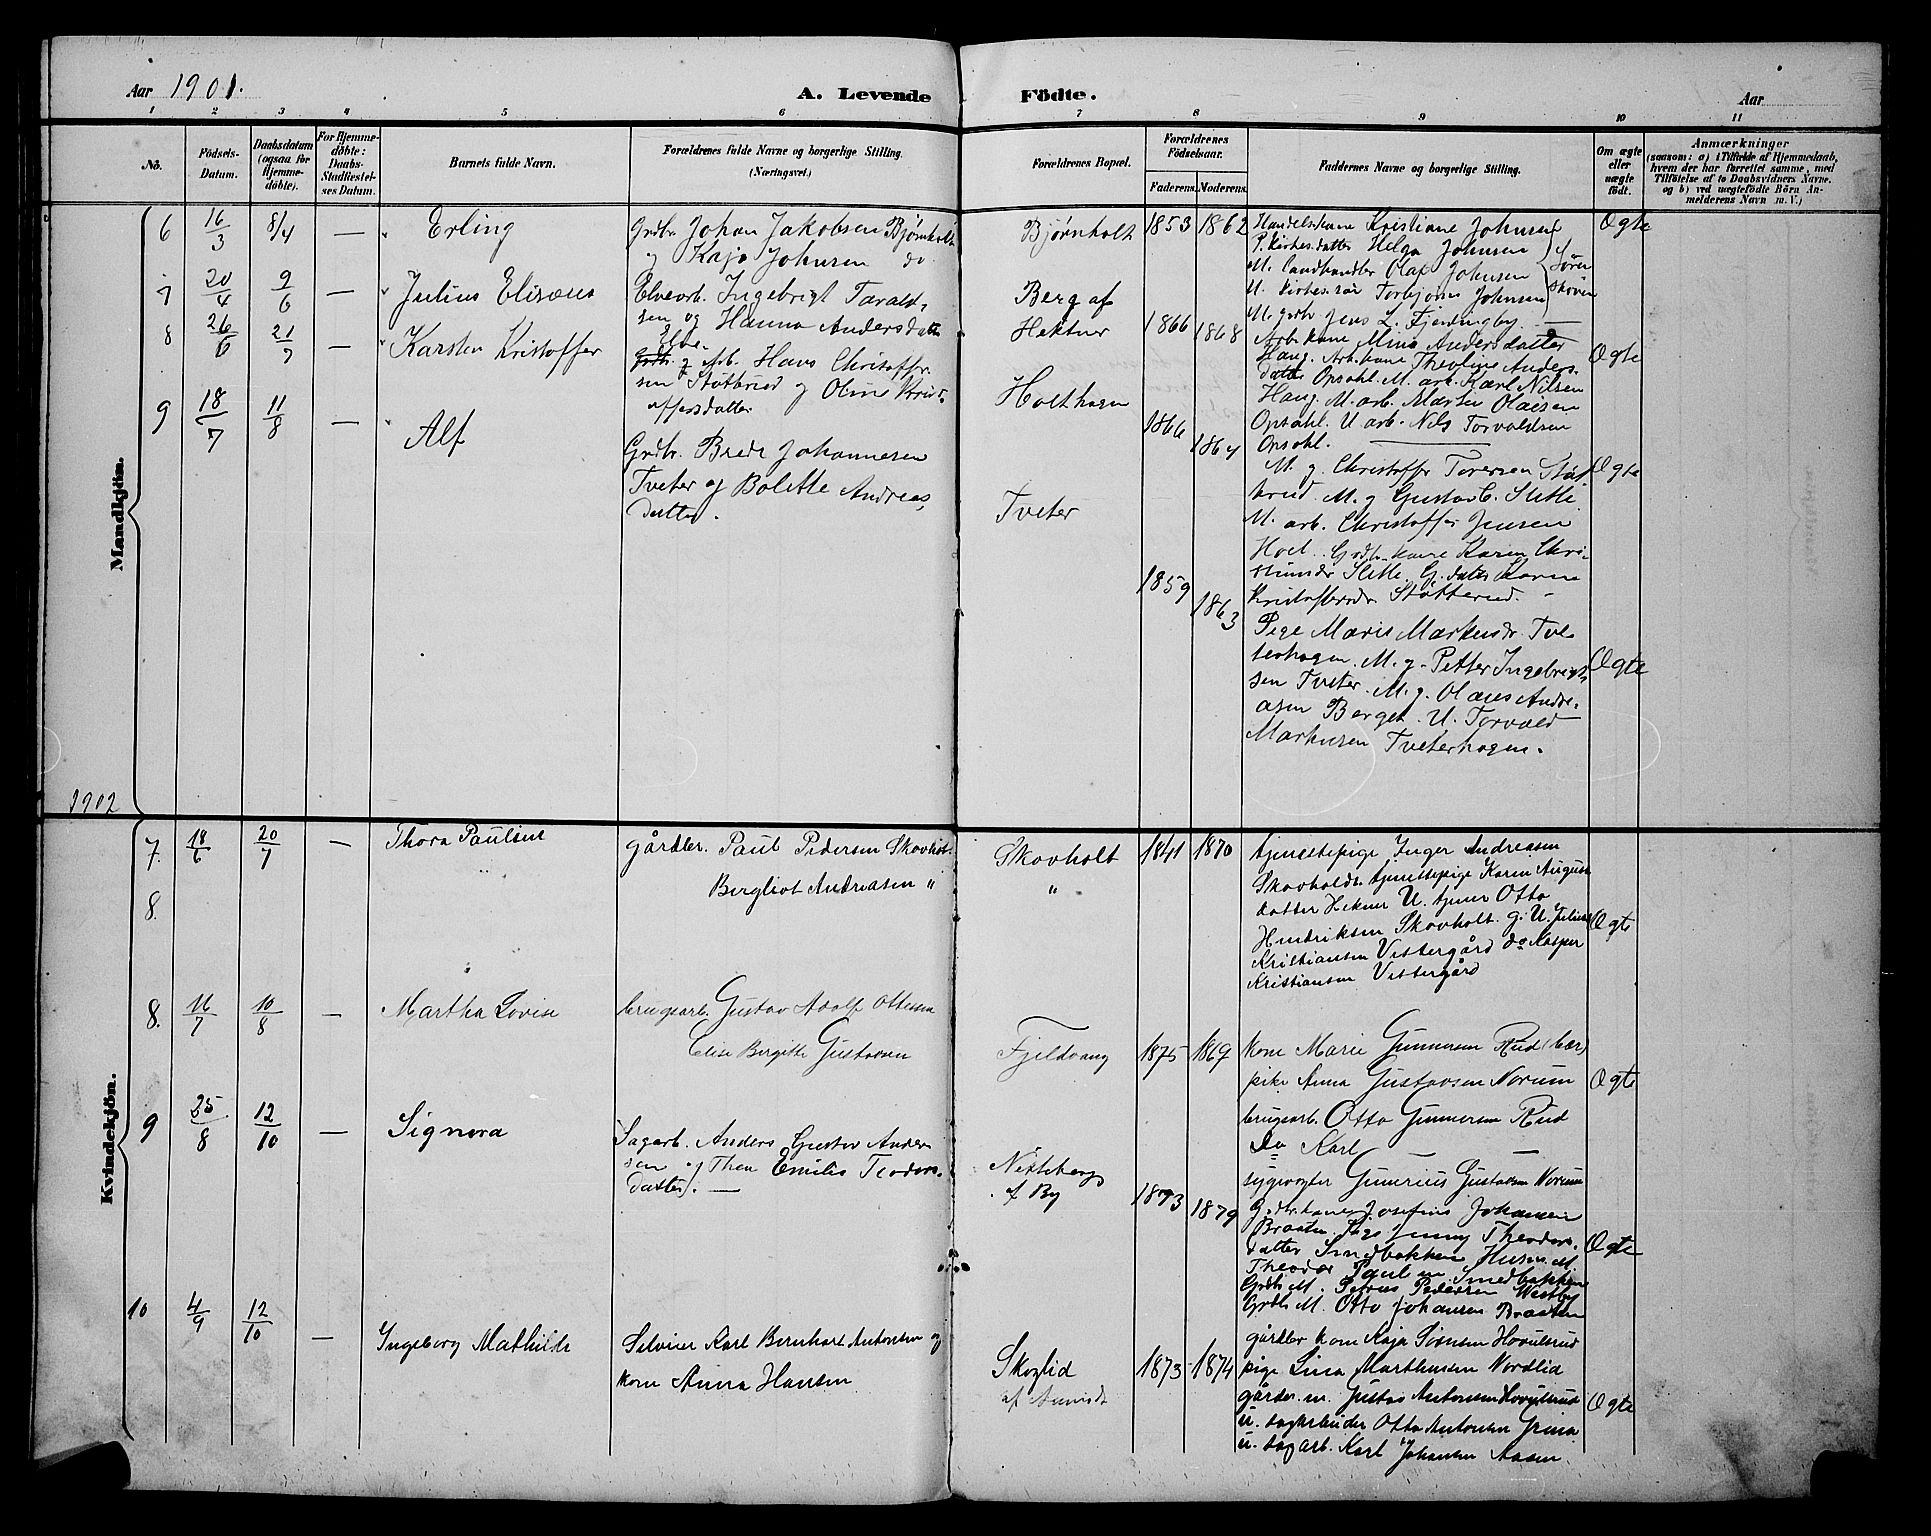 Aar 1901.
A. Levende Födte.
Aar
1 2 3 4 5 6 7 8 9 10 11
No.
Födsels-Datum.
Daabsdatum (ogsaa for Hjemme-döbte).
For Hjemme-döbte: Daabs-Stadfæstel-ses Datum.
Barnets fulde Navn.
Forældrenes fulde Navne og borgerlige Stilling. (Næringsvei.)
Forældrenes Bopæl.
Forældrenes Födselsaar.
Faderens. Moderens.
Faddernes Navne og borgerlige Stilling.
Om ægte eller uægte födt.
Anmærkninger
(saasom: a) i Tilfælde af Hjemmedaab,
hvem der har forrettet samme, med
Tilföielse af to Daabsvidners Navne.
og b) ved uægtefödte Börn An-
melderens Navn m. V.)
Mandkjön.
6 16/3 8/4 — Erling
Grdbr. Johan Jakobsen Bjørnholt
og Kaja Johnsen do
Bjørnholt 1853 1862
Handelskone Kristiane Johnsen
P. Kirkes.datter Helga Johnsen
M. Landhandler Olaf Johnsen
U. Kirkes.søn Torbjørn Johnsen
Sören
Skoven
M. grdbr Jens L. Fjerdingby —
Ogte
7 20/4 9/6 — Julius Elisæus
Elvearb. Ingebrigt Tarald-
sen og Hanna Andersdatter
Berg af
Hektner 1866 1868
Arb. kone Mina Andersdatter
Haug. Arb. kone Theoline Anders-
datter Opsahl. M. arb. Karl Nilsen
Haug. M. arb. Martin Olausen
Opsahl. U. arb. Nils Torvaldsen
Opsahl.
Ogte
8 26/6 21/7 — Karsten Kristoffer
Elve-
Arb. Hans Christoffer-
sen Støtbrud og Oline Krist-
offersdatter
Holthagen 1866 1864
M. g. Christoffer Toresen Støt-
brud. M. g. Gustav C. Slette
M. arb. Christoffer Jensen
Hoel. Grdbr. kone Karen Chri-
stiansdr Slette. G. datter Karen
Kristoffersdr Støtterud. -
Ogte
9 18/7 11/8 — Alf
Grdbr. Brede Johannesen
Tveter og Bolette Andreas-
datter.
Tveter 1859 1863
Pige Marie Markusdr. Tve-
terhagen. M. g. Petter Ingebrigt-
sen Tveter. M. g. Olaus Andre-
asen Berget. U. Torvald
Markusen Tveterhagen.
Ogte
1902
Kvindekjön.
7. 18/6 20/7 — Thora Pauline
gårdbr. Paul Pedersen Skovholt
Bergliot Andreasen "
Skovholt 1841 1870
"
tjenestepige Inger Andreasen
Skovholdt tjenestepige Karen August
datter Hekner U. tjener Otto
Hendriksen Skovholt. g. U. Julius
Kristiansen Vestergård do Kasper
Kristiansen Vestergård
Ogte
8.
8. 16/7 10/8 — Martha Lovise
brugsarb. Gustav Adolf Ottesen
Elise Birgitte Gustavsen
Fjeldvang 1875 1869
kone Marie Gunnersen Rud
pike Anna Gustavsen Norum
brugsarb. Otto Gunnersen Rud
Do Karl —
sygevogter Gunerius Gustavsen Norum
Ogte
9 25/8 12/10 — Signora
Sagarb. Anders Gustav Ander-
sen og Thea Emilie Teodors-
datter. —
Nitteberg
af By 1873 1879
Grdbr. kone Josefine Johansen
Braaten. Pige Jenny Theodors-
datter Smedbakken Husm. M.
Theodor Paulsen Smedbakken
Grdb. M. Petrus Pedersen Westby
Grdb M. Otto Johansen Braaten
Ogte
10 4/9 12/10 — Ingeborg Mathilde
Selveier Karl Bernhart Antonsen og
kone Anna Hansen
Skoglid
af 1873 1874
gårdbr kone Kaja Simensen Hovelsrud
pige Lina Marthinsen Nordlid
gårdbr. m. Gustav Antonsen Hovelsrud
u. dagarbeider Otto Antonsen Grina
u. dagarb. Karl Johansen Aasen.
Ogte